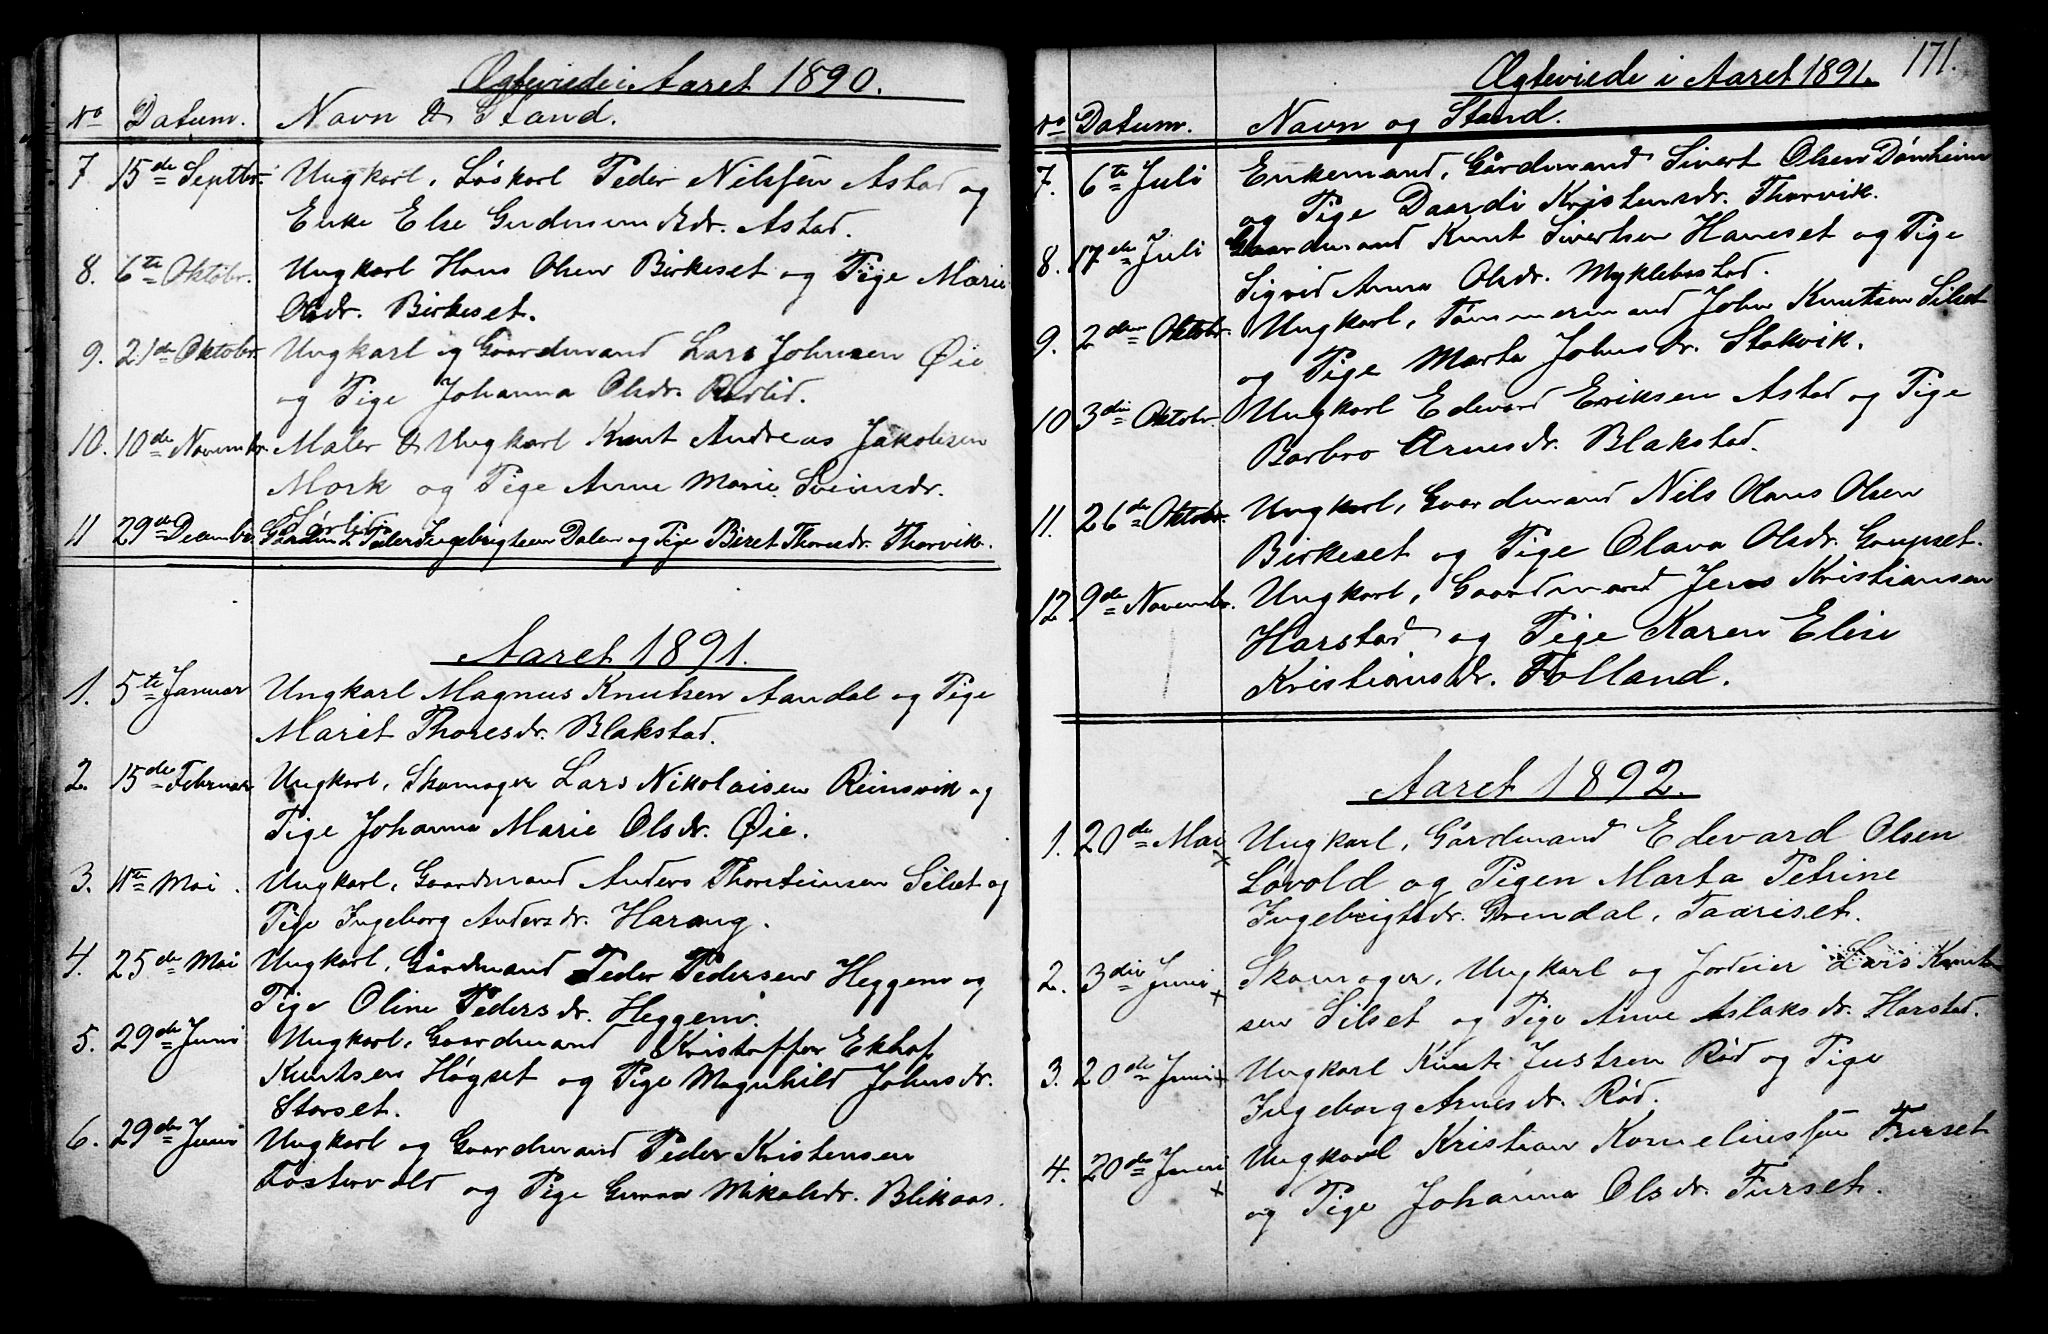 Ægteviede i Aaret 1890.
No Datum. Navn & Stand.
7. 15de Septbr. Ungkarl, Løskarl Peder Nilssen Astad og
Enke Else Gudmundsdr. Astad.
8. 6te Oktobr. Ungkarl Hans Olsen Birkeset og Pige Marie
Olsdr. Birkeset.
9. 21de Oktobr. Ungkarl og Gaardmand Lars Johnsen Øie
og Pige Johanna Olsdr. Rødlid.
10. 10de Novembr. Maler & Ungkarl Knut Andreas Jakobsen
Mork og Pige Anne Marie Sveinsdr.
Sørlid.
11 29de Decembr. Gaardm. Peder Ingebrigtsen Dalen og Pige Beret Thoresdr. Thorvik.
Aaret 1891.
1. 5te Januar Ungkarl Magnus Knutsen Aandal og Pige
Marit Thoresdr. Blakstad.
2. 15de Februar Ungkarl, Skomager Lars Nikolaisen Reinsvik og
Pige Johanna Marie Olsdr. Øie.
3. 11te Mai. Ungkarl, Gaardmand Anders Thorsteinsen Silset og
Pige Ingeborg Andersdr. Harang.
4. 25de Mai Ungkarl, Gårdmand Peder Pedersen Heggem og
Pige Oline Pedersdr. Heggem.
5. 29de Juni Ungkarl, Gaardmand Kristoffer Ekhof
Knutsen Høgset og Pige Magnhild Johnsdr.
Storset.
6. 29de Juni Ungkarl og Gaardmand Peder Kristensen
Fostervold og Pige Guroa Mikalsdr. Blikaas.
Ægteviede i Aaret 1891. 171.
No Datum. Navn og Stand.
7. 6te Juli Enkemand, Gårdmand Sivert Olsen Dønheim
og Pige Daardi Kristensdr. Thorvik.
8. 17de Juli Gaardmand Knut Sivertsen Haneset og Pige
Sigrid Anna Olsdr. Myklebostad.
9. 2den Oktobr. Ungkarl, Tømmermand John Knutsen Silset
og Pige Marta Johnsdr. Stokvik.
10 3die Oktobr. Ungkarl Edevard Eriksen Astad og Pige
Barbro Arnesdr. Blakstad.
11. 26de Oktobr. Ungkarl, Gaardmand Nils Olaus Olsen
Birkeset og Pige Olava Olsdr. Gaupset.
12 9de Novembr. Ungkarl, Gaardmand Jens Kristiansen
Harstad og Pige Karen Elise
Kristiansdr. Folland.
Aaret 1892.
1. 20de Mai Ungkarl, Gårdmand Edevard Olsen
Løvold og Pigen Marta Petrine
Ingebrigtsdr. Grendal, Taariset.
2. 3die Juni Skomager, Ungkarl og Jordeier Lars Knut-
sen Silset og Pige Anne Aslaksdr. Harstad.
3. 20de Juni Ungkarl Knut Justsen Rød og Pige
Ingeborg Arnesdr. Rød.
4. 20de Juni Ungkarl Kristian Korneliussen Furset
og Pige Johanna Olsdr. Furset.